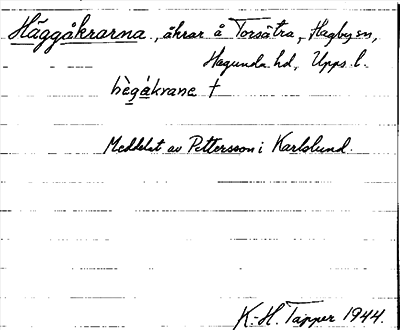 Häggåkrarna, åkrar å Torsätra, Hagby sn,
Hagunda hd, Upps. l.
hègåkrana †
Meddelat av Pettersson i Karlslund.
K.-H. Tapper 1944.